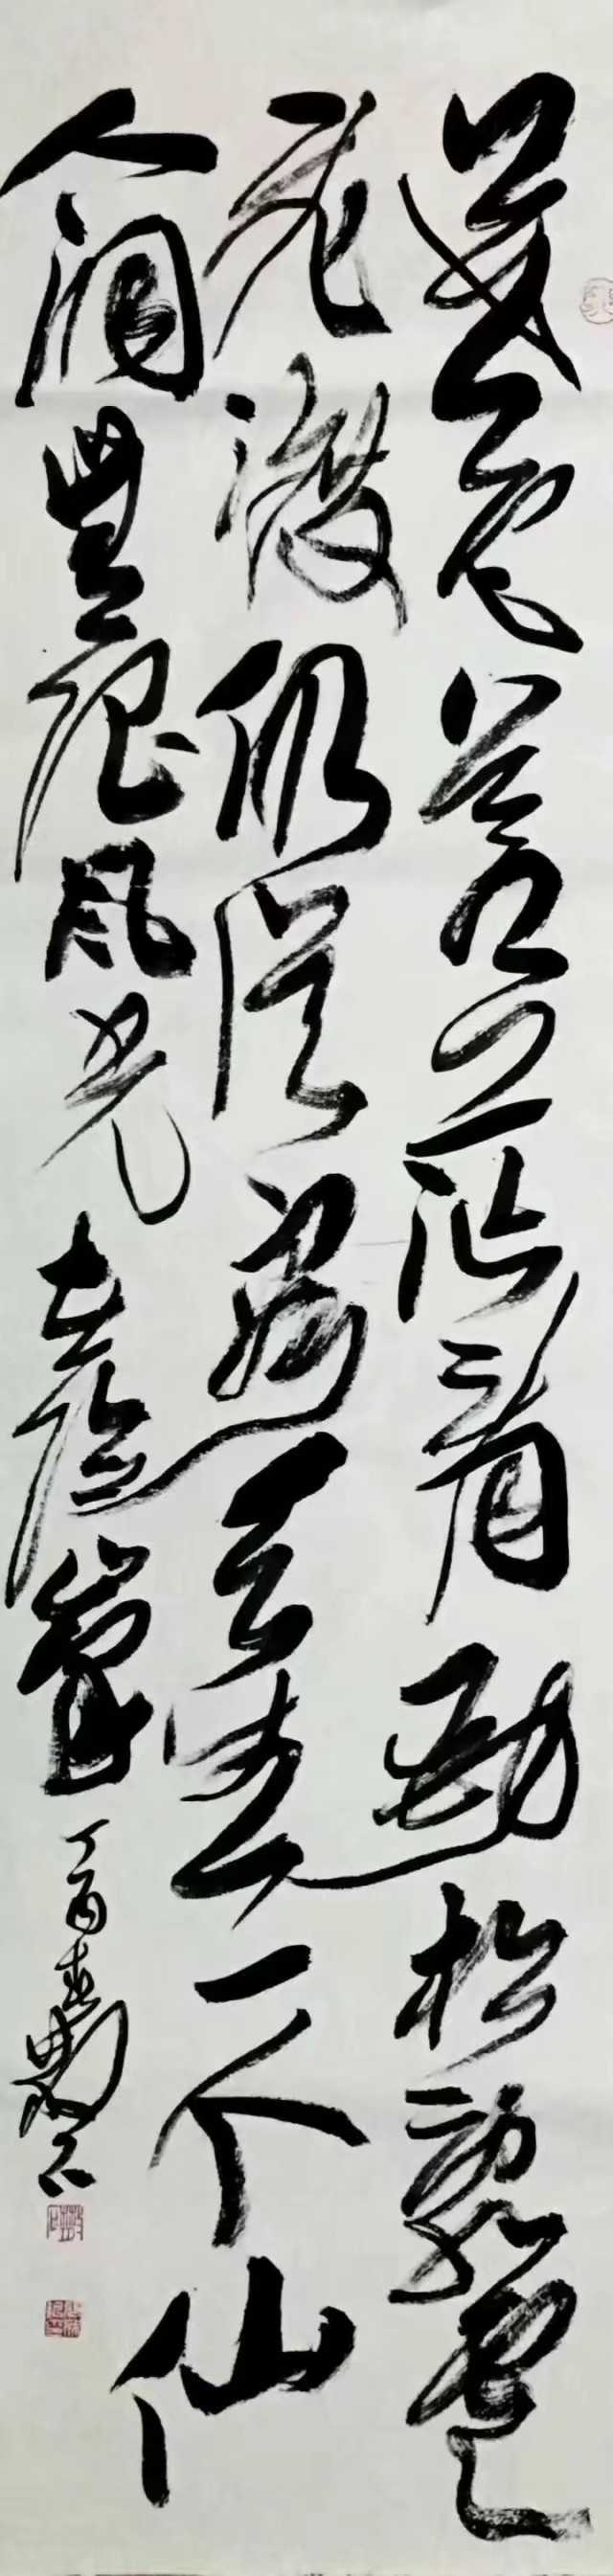 暮色苍茫看劲松乱云
飞渡仍从容天生一个仙
人洞无限风光在险峰
丁酉春